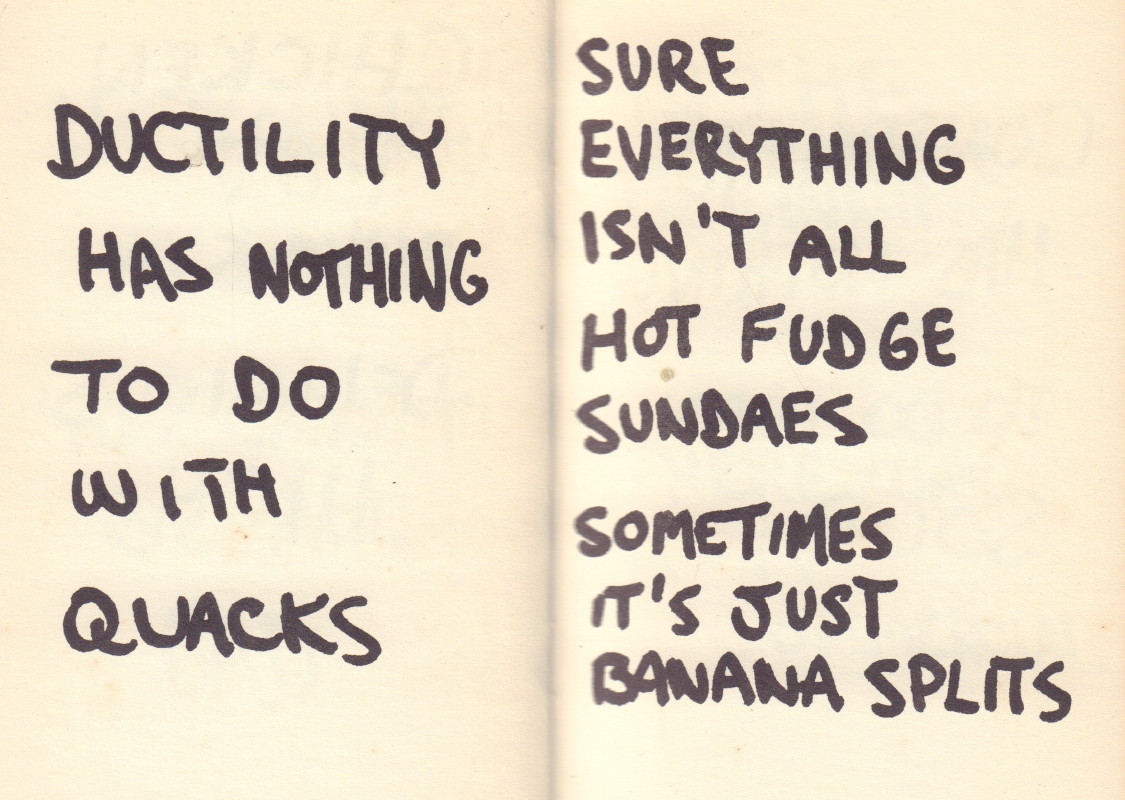 DUCTILITY
HAS NOTHING
TO DO
WITH
QUACKS
SURE
EVERYTHING
ISN'T ALL
HOT FUDGE
SUNDAES
SOMETIMES
IT'S JUST
BANANA SPLITS